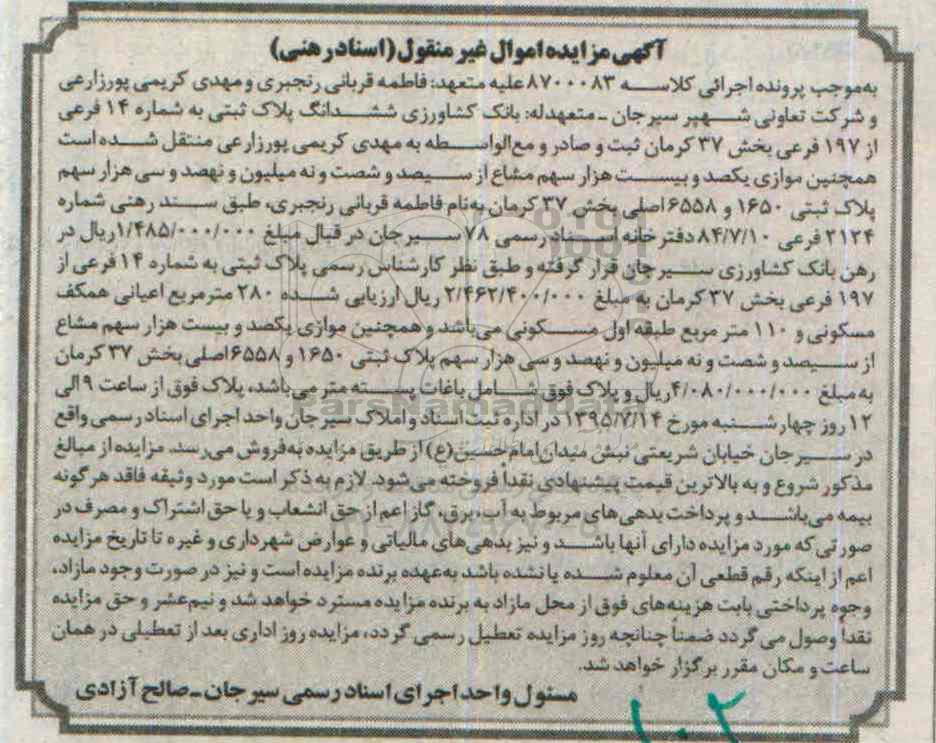 آگهی مزایده اموال غیر منقول (اسناد رهنی)
به‌موجب پرونده اجرائی کلاسه ۸۷۰۰۰۸۳ علیه متعهد: فاطمه قربانی رنجبری و مهدی کریمی پورزارعی
و شرکت تعاونی شهپر سیرجان ـ متعهدله: بانک کشاورزی ششدانگ پلاک ثبتی به شماره ۱۴ فرعی
از ۱۹۷ فرعی بخش ۳۷ کرمان ثبت و صادر و مع‌الواسطه به مهدی کریمی پورزارعی منتقل شده است
همچنین موازی یکصد و بیست هزار سهم مشاع از سیصد و شصت و نه میلیون و نهصد و سی هزار سهم
پلاک ثبتی ۱۶۵۰ و ۶۵۵۸ اصلی بخش ۳۷ کرمان به‌نام فاطمه قربانی رنجبری، طبق سند رهنی شماره
۲۱۲۴ فرعی ۸۴/۷/۱۰ دفترخانه اسناد رسمی ۷۸ سیرجان در قبال مبلغ ۱/۴۸۵/۰۰۰/۰۰۰ ریال در
رهن بانک کشاورزی سیرجان قرار گرفته و طبق نظر کارشناس رسمی پلاک ثبتی به شماره ۱۴ فرعی از
۱۹۷ فرعی بخش ۳۷ کرمان به مبلغ ۲/۴۶۲/۴۰۰/۰۰۰ ریال ارزیابی شده ۲۸۰ مترمربع اعیانی همکف
مسکونی و ۱۱۰ متر مربع طبقه اول مسکونی می‌باشد و همچنین موازی یکصد و بیست هزار سهم مشاع
از سیصد و شصت و نه میلیون و نهصد و سی هزار سهم پلاک ثبتی ۱۶۵۰ و ۶۵۵۸ اصلی بخش ۳۷ کرمان
به مبلغ ۴/۰۸۰/۰۰۰/۰۰۰ ریال و پلاک فوق شامل باغات پسته متر می‌باشد، پلاک فوق از ساعت ۹ الی
۱۲ روز چهارشنبه مورخ ۱۳۹۵/۷/۱۴ در اداره ثبت اسناد و املاک سیرجان واحد اجرای اسناد رسمی واقع
در سیرجان خیابان شریعتی نبش میدان امام حسین(ع) از طریق مزایده به‌فروش می‌رسد. مزایده از مبالغ
مذکور شروع و به بالاترین قیمت پیشنهادی نقداً فروخته می‌شود. لازم به ذکر است مورد وثیقه فاقد هرگونه
بیمه می‌باشد و پرداخت بدهی‌های مربوط به آب، برق، گاز اعم از حق انشعاب و یا حق اشتراک و مصرف در
صورتی که مورد مزایده دارای آنها باشد و نیز بدهی‌های مالیاتی و عوارض شهرداری و غیره تا تاریخ مزایده
اعم از اینکه رقم قطعی آن معلوم شده یا نشده باشد به‌عهده برنده مزایده است و نیز در صورت وجود مازاد،
وجوه پرداختی بابت هزینه‌های فوق از محل مازاد به برنده مزایده مسترد خواهد شد و نیم‌عشر و حق مزایده
نقداً وصول می گردد ضمناً چنانچه روز مزایده تعطیل رسمی گردد، مزایده روز اداری بعد از تعطیلی در همان
ساعت و مکان مقرر برگزار خواهد شد.
مسئول واحد اجرای اسناد رسمی سیرجان ـ صالح آزادی
۱۰۲